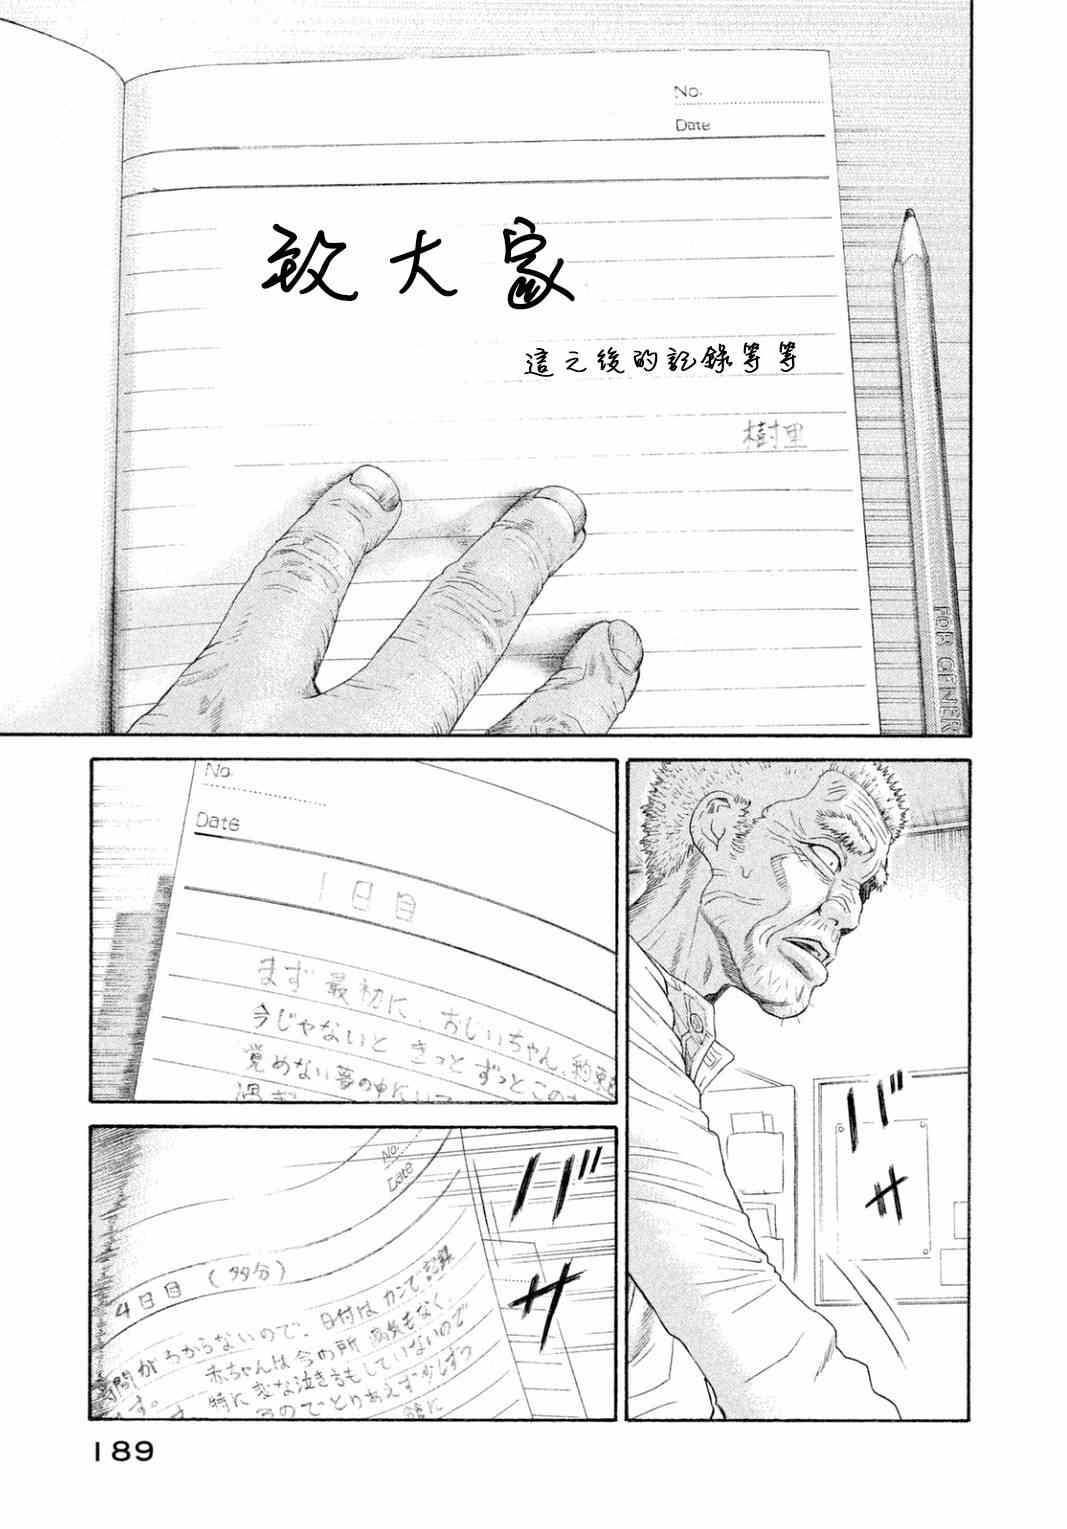 No.
Date
致大家
這之後的記錄等等
樹里
FOR GENER
No.
Date
1日目
まず最初に、おじいちゃん、約束
今じゃないと きっと ずっとこの
覚めない夢の中にいて
過ぎ
バ
サ
No.
Date
4日目 (多分)
時間がわからないので、日付はカンで、記録
す。 赤ちゃんは今の所 病気もなく、
特に変な泣き方もしていないので
るのでとりあえず少しずつ
バ
サ
189